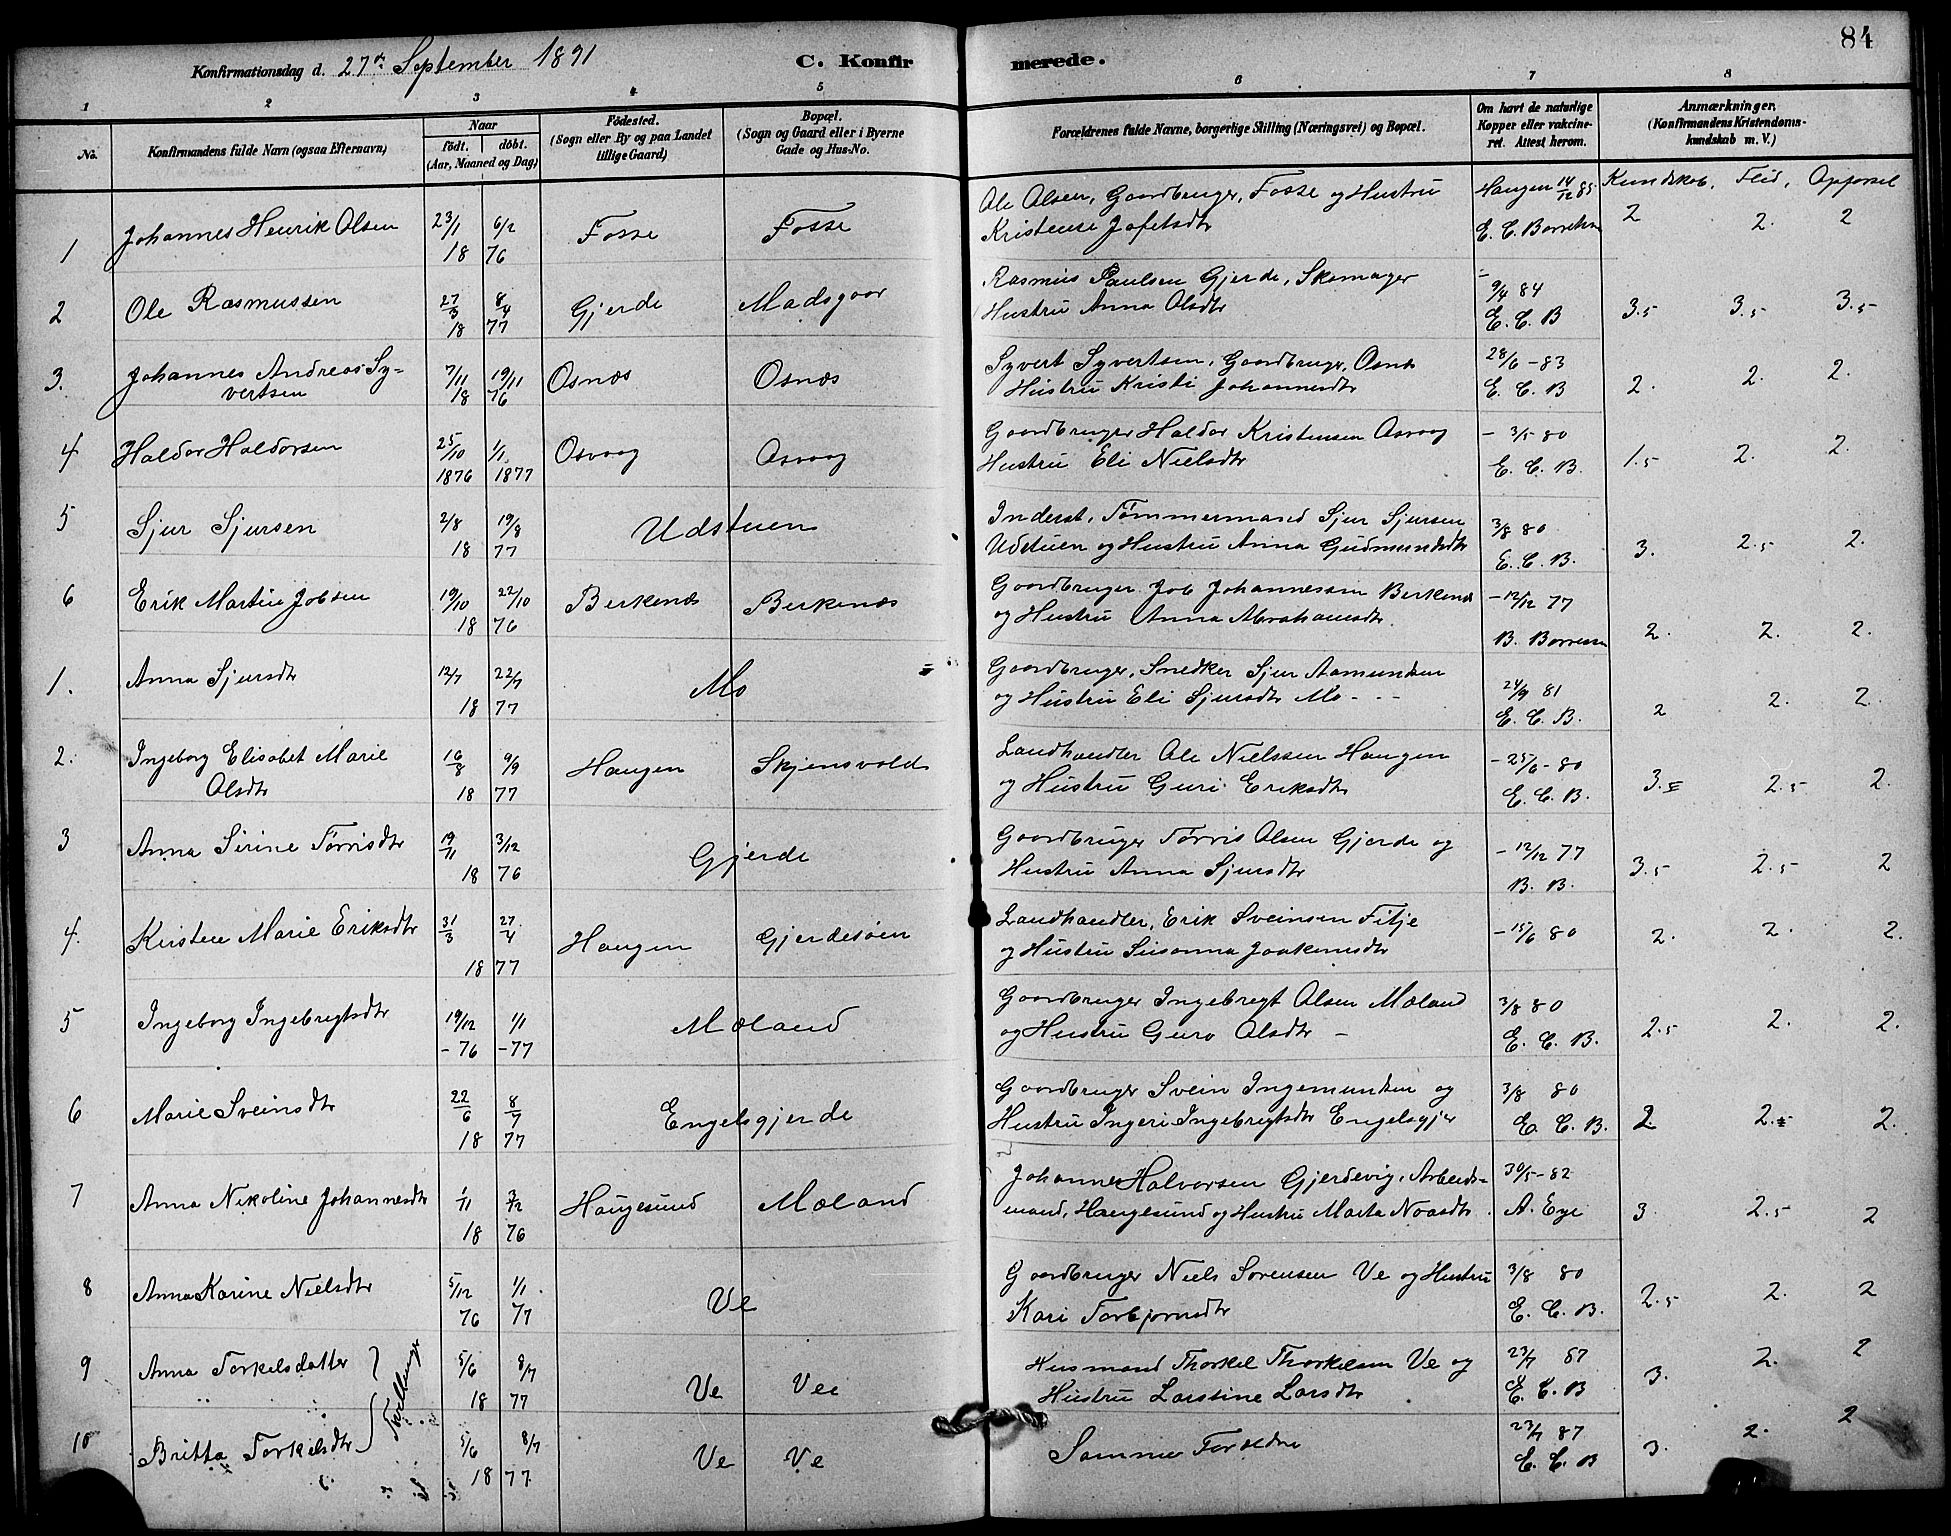 84
Konfirmationsdag d. 27de September 1891 C. Konfirmerede.
1 2 3 4 5 6 7 8
No. Konfirmandens fulde Navn (ogsaa Efternavn) Naar født. døbt. (Aar, Maaned og Dag) Fødested. (Sogn eller By og paa Landet tillige Gaard) Bopæl. (Sogn og Gaard eller i Byerne Gade og Hus-No. Forældrenes fulde Navne, borgerlige Stilling (Næringsvei) og Bopæl. Om havt de naturlige Kopper eller vakcineret. Attest herom. Anmærkninger. (Konfirmandens Kristendomskundskab m. V.)
Kundskab, Flid, Opførsel
1 Johannes Henrik Olsen 23/1 6/2 1876 Fosse Fosse Ole Olsen, Gaardbruger, Fosse og Hustru Haugen 14/12 85
Kristense Jafetsdtr E. C. 2 2. 2
2 Ole Rasmussen 27/3 8/4 1877 Gjerde Madsgaar Rasmus Paulsen Gjerde, Skomager 9/4 84
Hustru Anna Olsdtr E. C. B 3.5 3.5 3.5
3. Johannes Andreas Sy- 7/11 19/11 1876 Osnæs Osnæs Syvert Syvertsen, Gaardbruger, Osnæs 28/6 - 83
vertsen Hustru Kristi Johannesdtr E. C. B 2. 2. 2.
4 Haldor Haldorsen 25/10 1876 1/1 1877 Osvaag Osvaag Gaardbruger Haldor Kristensen Osvaag - 3/5 80
Hustru Eli Nielsdtr E. C. B. 1.5 2. 2.
5 Sjur Sjursen 2/8 19/8 1877 Udstuen Inderst, Tømmermand Sjur Sjursen 3/8 80
Udstuen og Hustru Anna Gudmundsdtr E. C. B. 3. 2.5 2.
6 Erik Martin Jobsen 19/10 22/10 1876 Berkenæs Berkenæs Gaardbruger Job Johannessen Berkenæs - 12/12 77
og Hustru Anna Abrahamsdtr. B. 2. 2. 2.
1. Anna Sjursdtr 12/7 22/7 1877 Mo Gaardbruger, Snedker Sjur Aamundsen 24/9 81
og Hustru Eli Sjursdtr Mo - - E. C. B. 2 2. 2.
2. Ingeborg Elisabet Marie 16/8 9/9 1877 Haugen Skjensvold Landhandler Ole Nielssen Haugen - 25/6 - 80
Olsdtr og Hustru Guri Eriksdtr E. C. B. 3. 2.5 2.
3 Anna Sirine Tørrisdtr 19/11 3/12 1876 Gjerde Gaardbruger Tørris Olsen Gjerde og - 12/12 77
Hustru Anna Sjursdtr B. B. 3.5 2.5 2
4. Kristine Marie Eriksdtr 31/3 27/4 1877 Haugen Gjerdesøen Landhandler, Erik Sveinsen Fitje
og Hustru Susanna Joakimsdtr - 15/6 80 2. 2. 2.
5 Ingeborg Ingebregtsdtr 19/12 - 76 1/1 - 77 Mæland Gaardbruger Ingebregt Olsen Mæland 3/8 80
og Hustru Guro Olsdtr - E. C. B. 2.5 2. 2.
6 Marie Sveinsdtr 22/6 8/7 1877 Engelsgjerde Gaardbruger Svein Ingemundsen og 3/8 80
Hustru Ingeri Ingebregtsdtr Engelsgjer E. C. B. 2. 2. 2.
7 Anna Nikoline Johannesdtr 1/11 3/12 1876 Haugesund Mæland Johannes Halvorsen Gjerdevig, Arbeids- 30/5 - 82
mand, Haugesund og Hustru Marta Noasdtr. A. Eye 3 2.5 2
8 Anna Karine Nielsdtr 5/12 76 1/1 77 Ve Gaardbruger Niels Sørensen Ve og Hustru 3/8 80
Kari Torbjørnsdtr E. C. B. 2.5 2. 2
9 Anna Torkelsdatter Tvillinger 5/6 8/7 1877 Ve Vee Husmand Thorkel Thorkelsen Ve og 23/7 87
Hustru Larstine Larsdtr E. C. B 3. 2. 2
10 Britta Torkelsdtr 5/6 8/7 1877. Ve Ve Samme Forældre 23/7 87
E. C. B 3. 2. 2